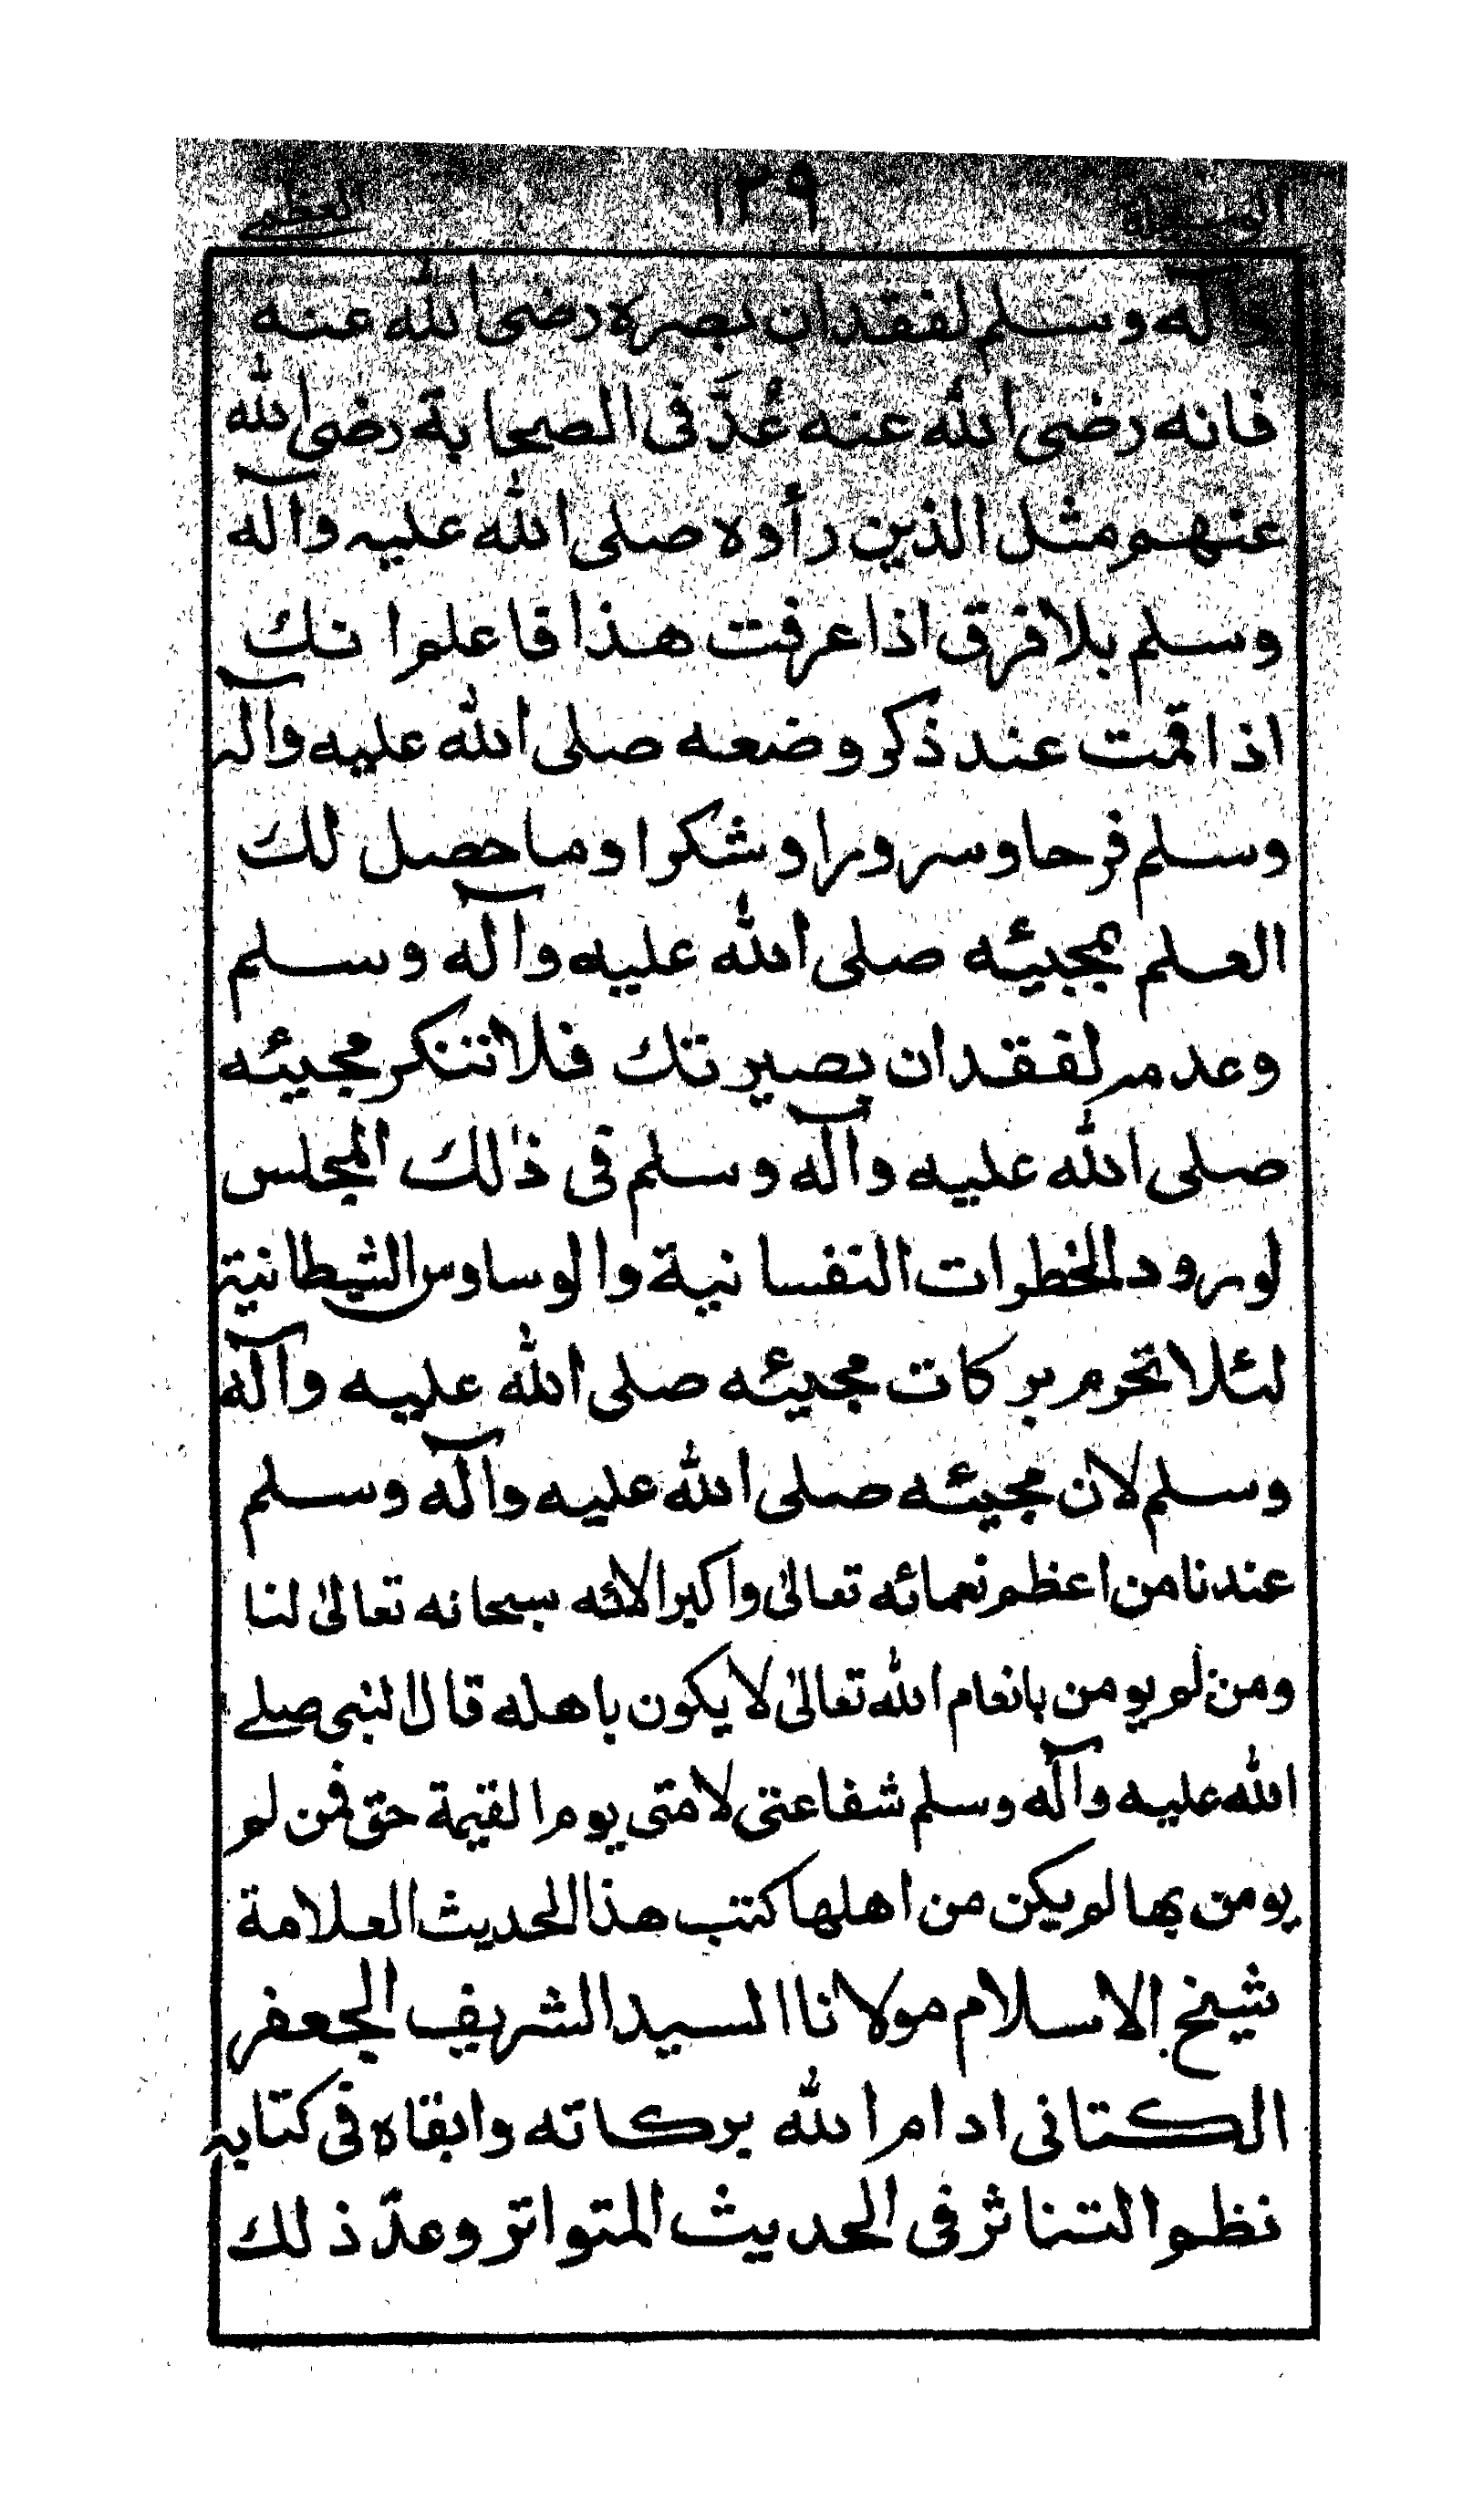 الوسيلة ١٣٩ العظمى
وآله وسلم لفقدان بصره رضى الله عنه
فانه رضى الله عنه عُدَّ فى الصحابة رضى الله
عنهم مثل الذين رأوه صلى الله عليه وآله
وسلم بلا فرق اذا عرفت هذا فاعلم انك
اذا قمت عند ذكر وضعه صلى الله عليه وآله
وسلم فرحا وسرورا وشكرا وما حصل لك
العلم بمجيئه صلى الله عليه وآله وسلم
وعدمه لفقدان بصيرتك فلا تنكر مجيئه
صلى الله عليه وآله وسلم فى ذلك المجلس
لورود الخطرات النفسانية والوساوس الشيطانية
لئلا تحرم بركات مجيئه صلى الله عليه وآله
وسلم لان مجيئه صلى الله عليه وآله وسلم
عندنا من اعظم نعمائه تعالىٰ واكبر الائه سبحانه تعالىٰ لنا
ومن لم يومن بانعام الله تعالىٰ لا يكون باهله قال النبى صلے
الله عليه وآله وسلم شفاعتى لامتى يوم القيمة حق فمن لم
يومن بها لم يكن من اهلها كتب هذا الحديث العلامة
شيخ الاسلام مولانا السيد الشريف الجعفر
الكتانى ادام الله بركاته وابقاه فى كتابه
نظم التناثر فى الحديث المتواتر وعدّ ذلك